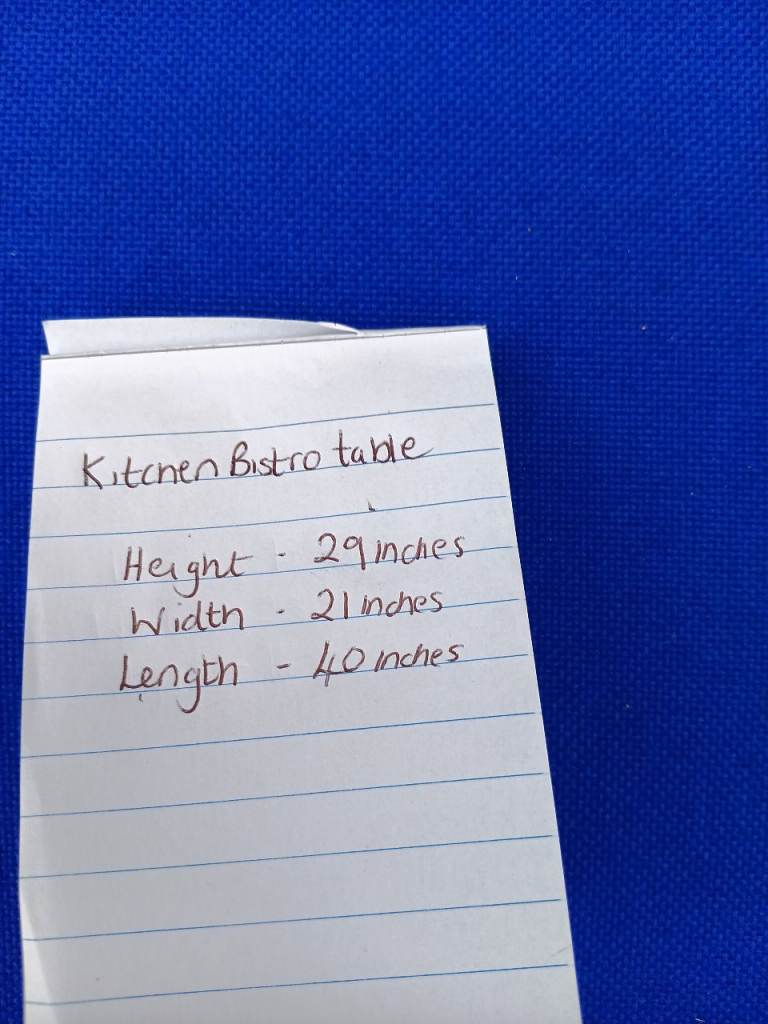 Kitchen Bistro table
Height - 29 inches
Width - 21 inches
Length - 40 inches